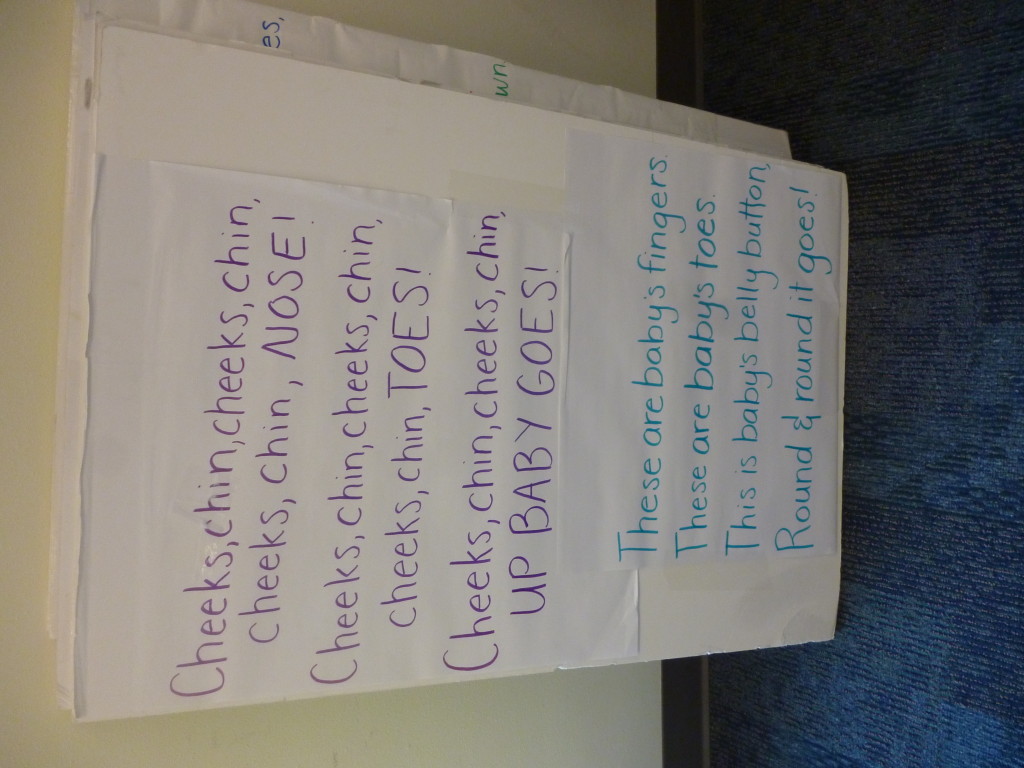 es,
wn
Cheeks, chin, cheeks, chin,
cheeks, chin, NOSE!
Cheeks, chin, cheeks, chin,
cheeks, chin, TOES!
Cheeks, chin, cheeks, chin,
UP BABY GOES!
These are baby's fingers.
These are baby's toes.
This is baby's belly button,
Round & round it goes!